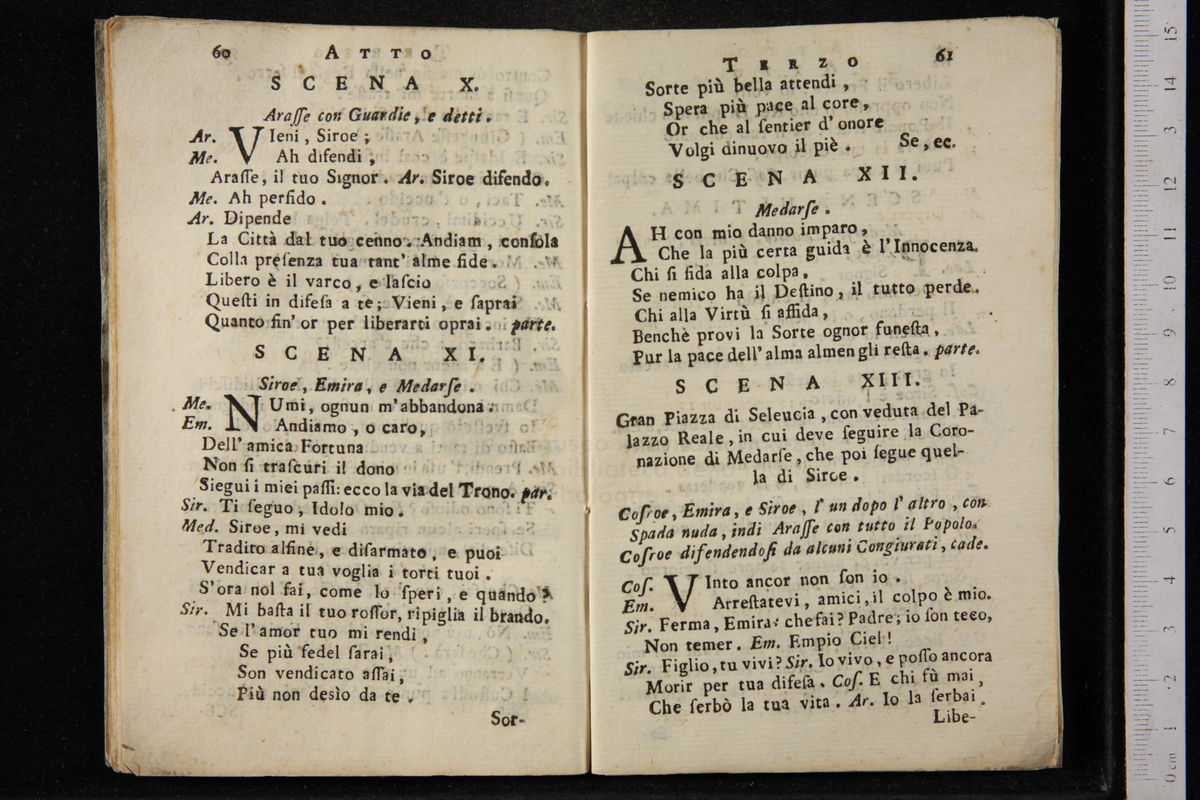 60 ATTO
SCENA X.
Araſſe con Guardie, e detti.
Ar. VIeni, Siroe;
Me. Ah difendi,
Araſſe, il tuo Signor. Ar. Siroe difendo.
Me. Ah perfido.
Ar. Dipende
La Città dal tuo cenno. Andiam, conſola
Colla preſenza tua tant' alme fide.
Libero è il varco, e laſcio
Queſti in difeſa a te; Vieni, e ſaprai
Quanto fin' or per liberarti oprai. parte.
SCENA XI.
Siroe, Emira, e Medarſe.
Me. NUmi, ognun m'abbandona.
Em. Andiamo, o caro,
Dell' amica Fortuna
Non ſi traſcuri il dono
Siegui i miei paſſi: ecco la via del Trono. par.
Sir. Ti ſeguo, Idolo mio.
Med. Siroe, mi vedi
Tradito alfine, e diſarmato, e puoi
Vendicar a tua voglia i torti tuoi.
S'ora nol fai, come lo ſperi, e quando?
Sir. Mi baſta il tuo roſſor, ripiglia il brando.
Se l'amor tuo mi rendi,
Se più fedel ſarai,
Son vendicato aſſai,
Più non desìo da te.
Sor-
TERZO 61
Sorte più bella attendi,
Spera più pace al core,
Or che al ſentier d'onore
Volgi dinuovo il piè. Se, ec.
SCENA XII.
Medarſe.
AH con mio danno imparo,
Che la più certa guida è l'Innocenza.
Chi ſi fida alla colpa,
Se nemico ha il Deſtino, il tutto perde.
Chi alla Virtù ſi affida,
Benchè provi la Sorte ognor funeſta,
Pur la pace dell'alma almen gli reſta. parte.
SCENA XIII.
Gran Piazza di Seleucia, con veduta del Pa-
lazzo Reale, in cui deve ſeguire la Coro-
nazione di Medarſe, che poi ſegue quel-
la di Siroe.
Coſroe, Emira, e Siroe, l' un dopo l' altro, con
Spada nuda, indi Araſſe con tutto il Popolo.
Coſroe difendendoſi da alcuni Congiurati, cade.
Coſ. VInto ancor non ſon io.
Em. Arreſtatevi, amici, il colpo è mio.
Sir. Ferma, Emira: che fai? Padre; io ſon teco,
Non temer. Em. Empio Ciel!
Sir. Figlio, tu vivi? Sir. Io vivo, e poſſo ancora
Morir per tua difeſa. Coſ. E chi fù mai,
Che ſerbò la tua vita. Ar. Io la ſerbai.
Libe-